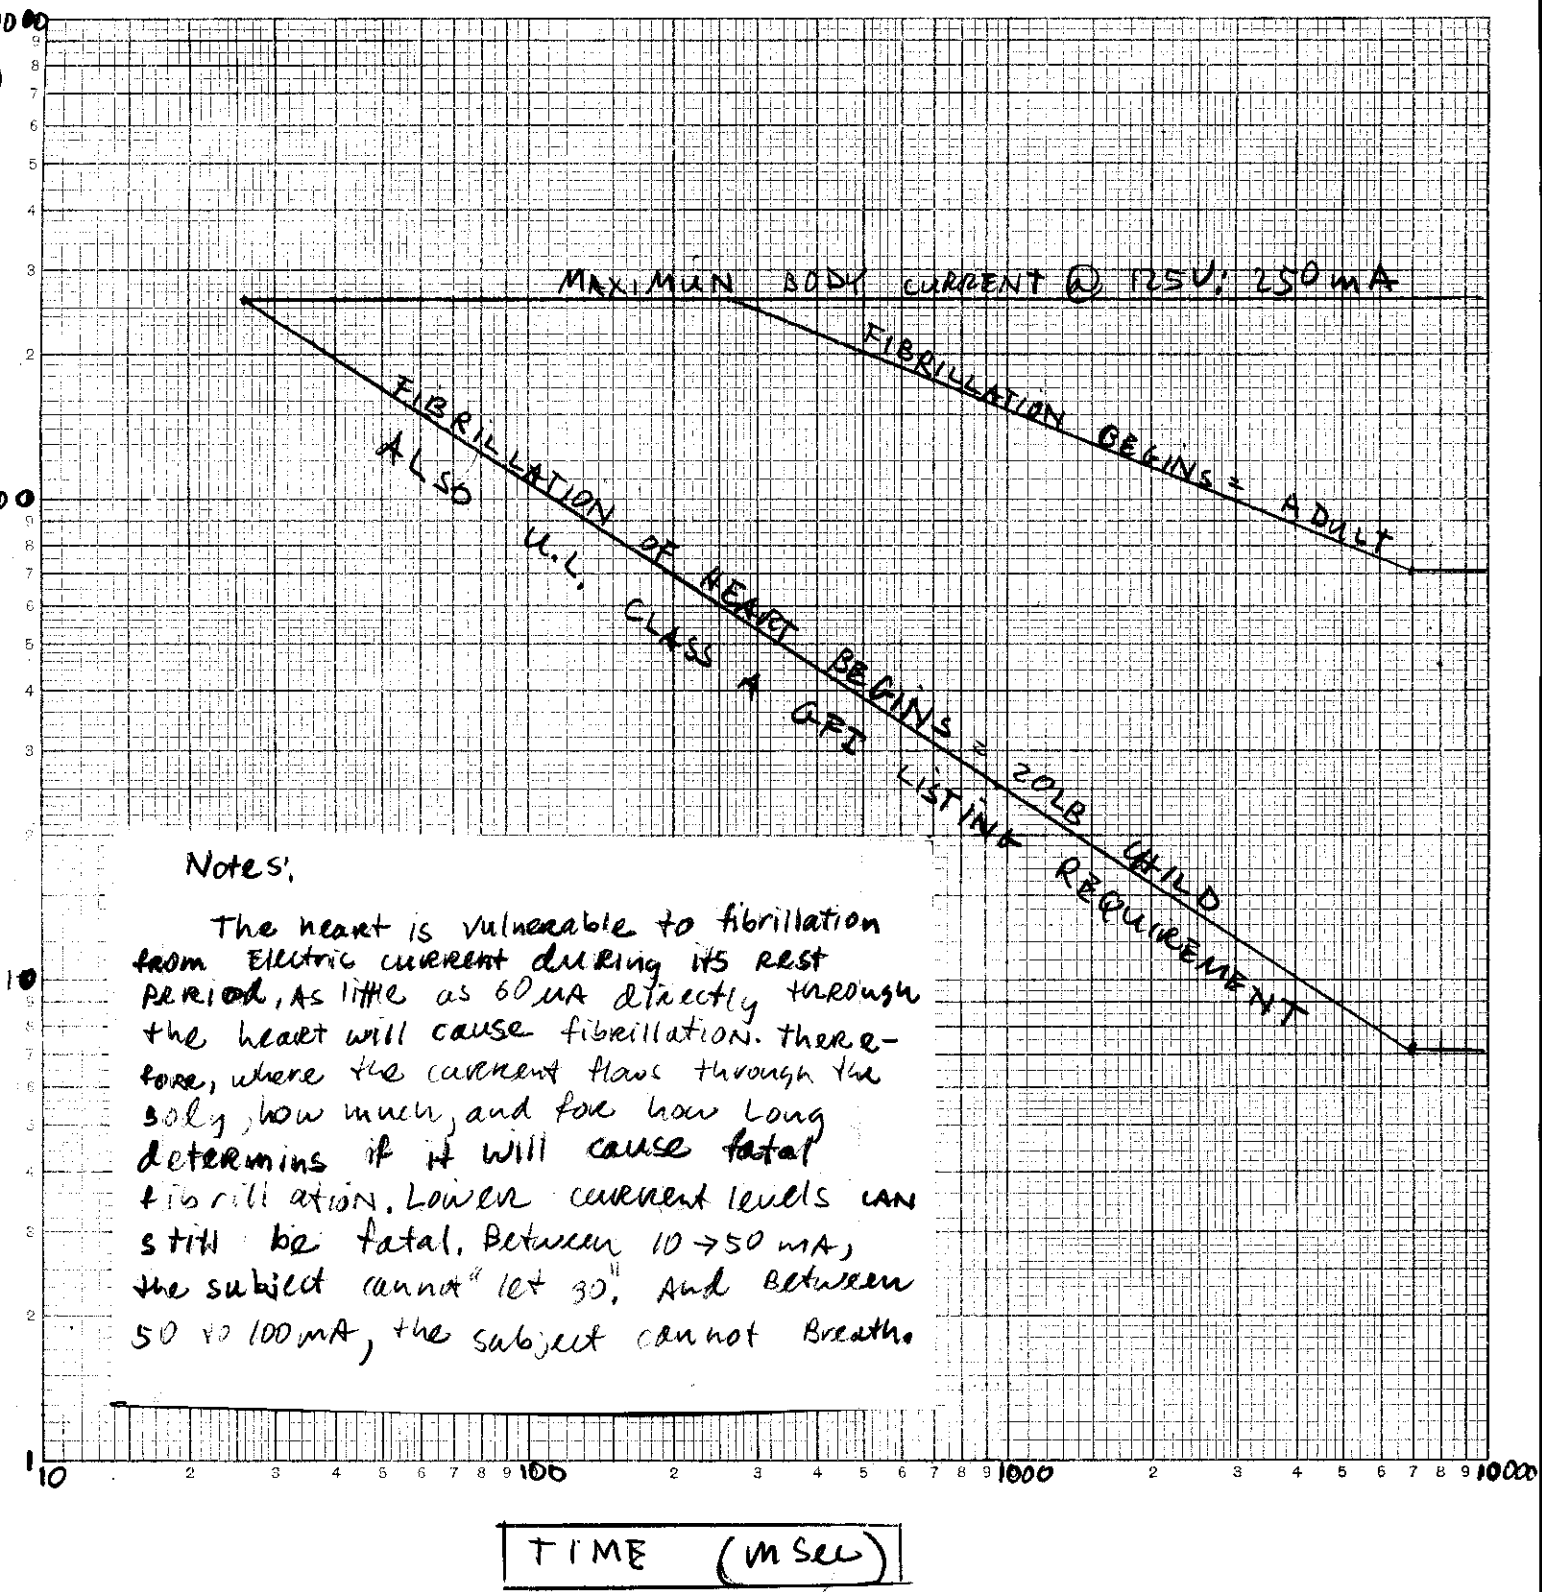 1000
9
8
7
6
5
4
3
2
100
9
8
7
6
5
4
3
2
10
9
8
7
6
5
4
3
2
1
MAXIMUN BODY CURRENT @ 125V: 250mA
FIBRILLATION BEGINS = ADULT
FIBRILLATION OF HEART BEGINS = 20LB CHILD
ALSO U.L. CLASS A GFI LISTING REQUIREMENT
Notes:
The heart is vulnerable to fibrillation
from Electric current during its rest
period, As little as 60 uA directly through
the heart will cause fibrillation. there-
fore, where the current flows through the
body, how much, and for how Long
determins if it will cause fatal
fibrillation. Lower current levels CAN
still be fatal. Between 10 → 50 mA,
the subject cannot "let go". And Between
50 to 100 mA, the subject cannot Breath.
10 2 3 4 5 6 7 8 9 100 2 3 4 5 6 7 8 9 1000 2 3 4 5 6 7 8 9 10000
TIME (mSec)